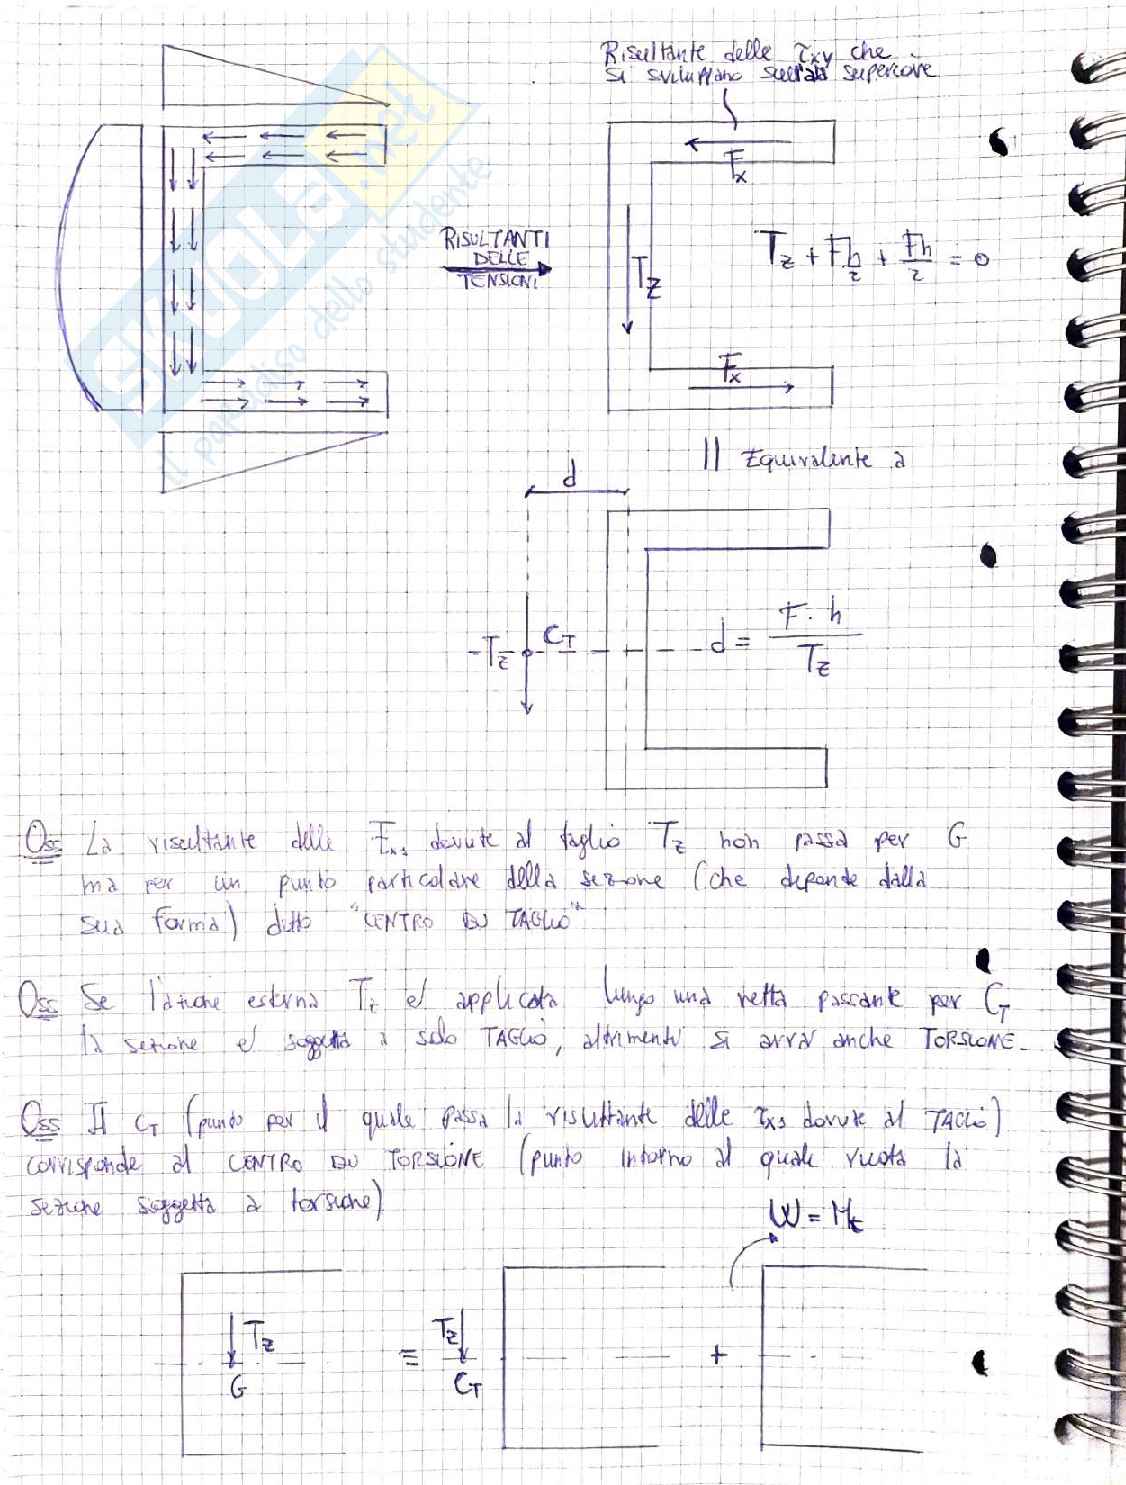 Risultante delle τxy che
si sviluppano sull'ala superiore
Fx
RISULTANTI
DELLE
TENSIONI
Tz
Tz + Fh/2 + Fh/2 = 0
Fx
|| Equivalente a
d
Tz
CT
d = F·h / Tz
Oss La risultante delle dovute al taglio Tz non passa per G
ma per un punto particolare della sezione (che dipende dalla
sua forma) ditto "CENTRO DI TAGLIO"
Oss Se l'azione esterna Tz e' applicata lungo una retta passante per CT
la sezione e' soggetta a solo TAGLIO, altrimenti si avra' anche TORSIONE.
Oss Il CT (punto per il quale passa la risultante delle τxs dovute al TAGLIO)
corrisponde al CENTRO DI TORSIONE (punto intorno al quale ruota la
sezione soggetta a torsione)
W = Mt
Tz
G
≡
Tz
CT
+
SKUOLA.net
il paradiso dello studente